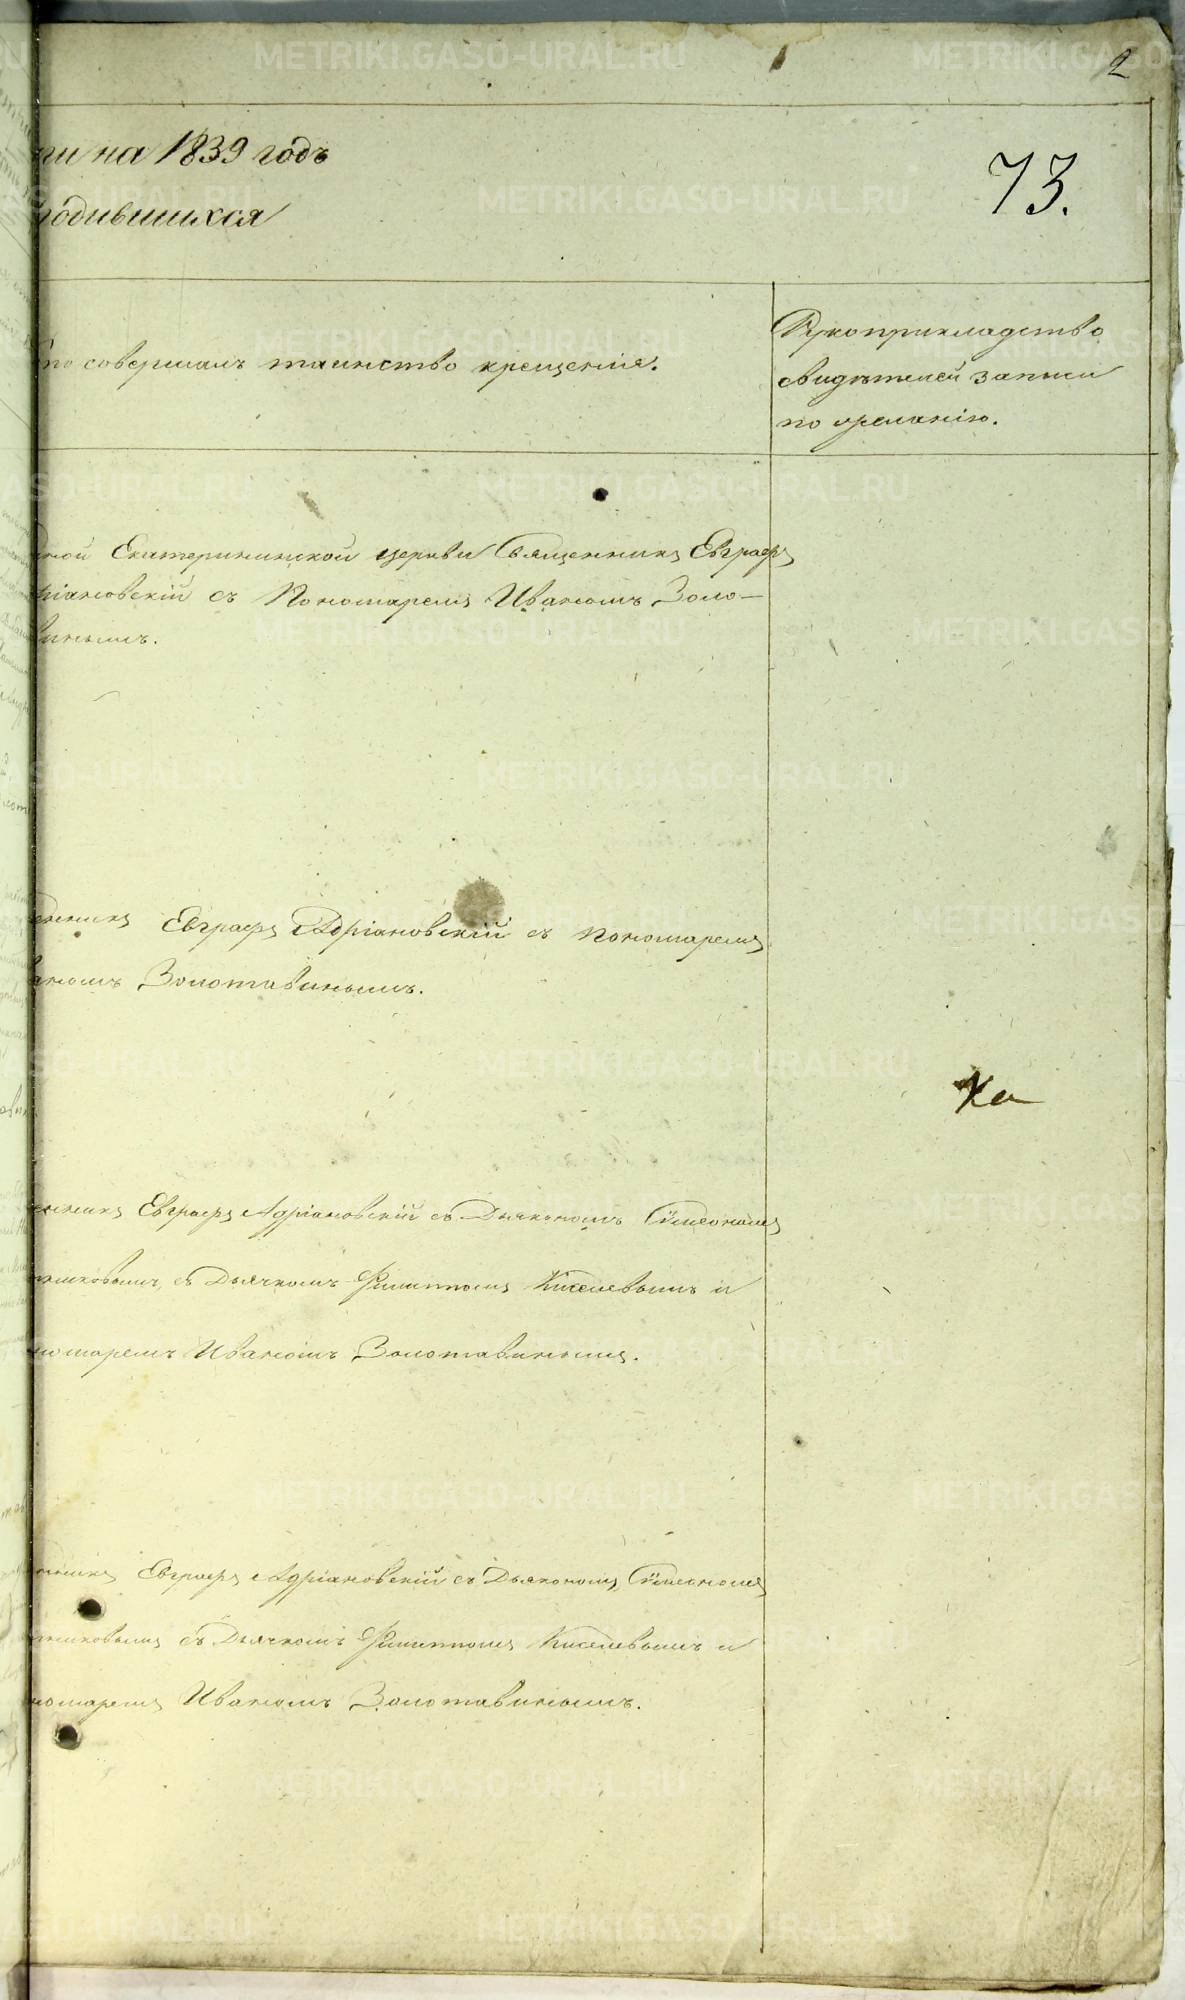 2
ги на 1839 годъ
73.
родившихся
то совершалъ таинство крещенія.
Рукоприкладство
свидѣтелей записи
по желанію.
Екатерининской церкви Священникъ Евграфъ
ріановскій съ Пономаремъ Иваномъ Золо-
виннымъ.
Евграфъ Адріановскій съ Пономаремъ
Золотавинымъ.
Ка
Евграфъ Адріановскій съ Дьякономъ Сѵмеономъ
съ Дьячкомъ Филиппомъ Киселевымъ и
номаремъ Иваномъ Золотавинымъ.
Евграфъ Адріановскій съ Дьякономъ Сѵмеономъ
съ Дьячкомъ Филиппомъ Киселевымъ и
номаремъ Иваномъ Золотавинымъ.
METRIKI.GASO-URAL.RU